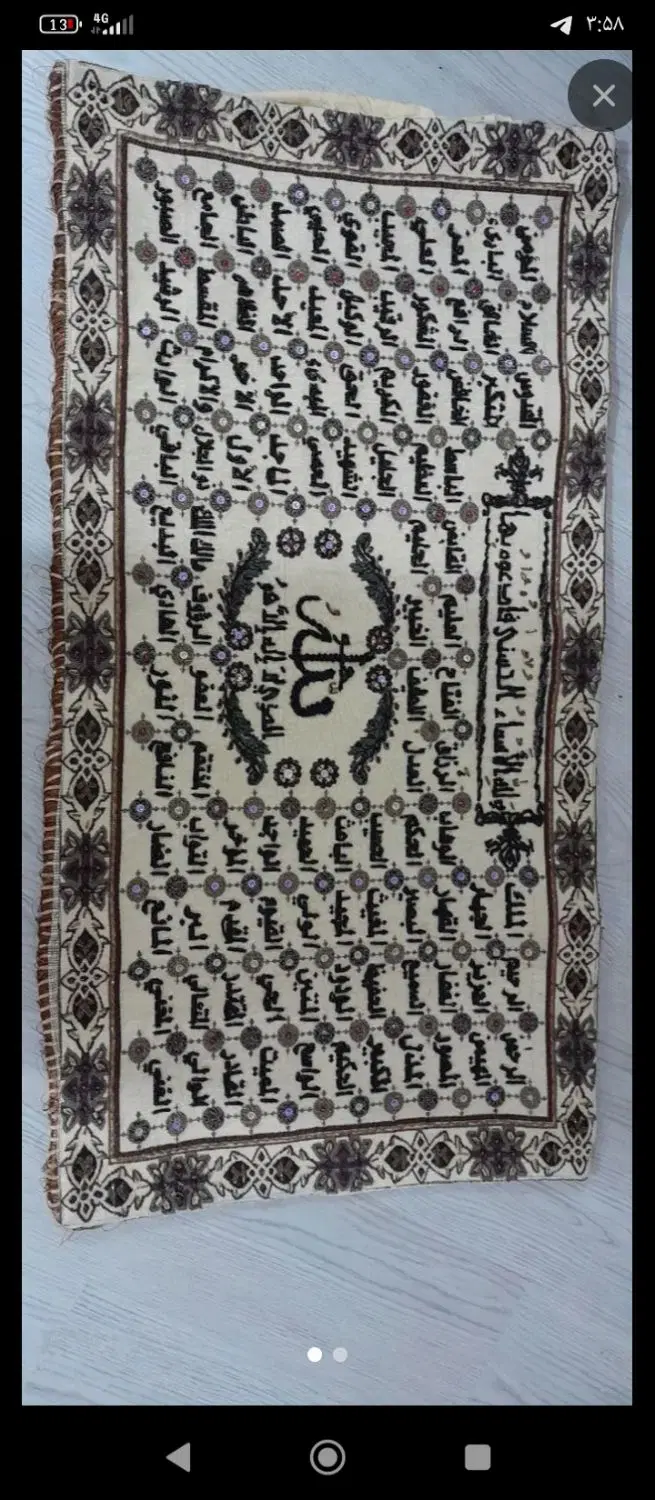 13 4G ۳:۵۸
ولله الأسماء الحسنى فادعوه بها
الرحمن الرحيم الملك القدوس السلام المؤمن
المهيمن العزيز الجبار المتكبر الخالق البارئ
المصور الغفار القهار الوهاب الرزاق الفتاح العليم القابض الباسط الخافض الرافع المعز
المذل السميع البصير الحكم العدل اللطيف الخبير الحليم العظيم الغفور الشكور العلي
الكبير الحفيظ المقيت الحسيب الجليل الكريم الرقيب المجيب
الحكيم الودود المجيد الباعث الشهيد الحق الوكيل القوي
الواسع المتين الولي الحميد المحصي المبدئ المعيد المحيي
المميت الحي القيوم الواجد الماجد الواحد الاحد الصمد
القادر المقتدر المقدم المؤخر الاول الاخر الظاهر الباطن
الوالي المتعالي البر التواب المنتقم العفو الرؤوف مالك الملك ذوالجلال والاكرام المقسط الجامع
الغني المغني المانع الضار النافع النور الهادي البديع الباقي الوارث الرشيد الصبور
الله